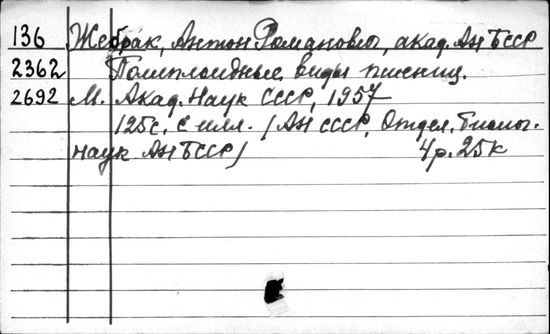 136 Жебрак, Антон Романович, акад. АН БССР
2362 Полиплоидные виды пшениц.
2692 М. Акад. Наук СССР, 1957
125с. с илл. (АН СССР, Отдел. биолог.
наук АН БССР) 4р. 25к